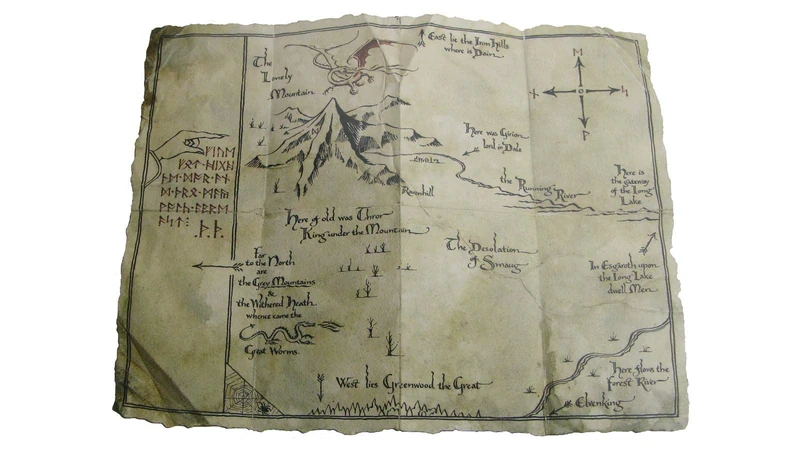 East lie the Iron Hills
where is Dain.
The
Lonely
Mountain
ᚠᛁᚢᛖ
ᚦ᛫ᚦ᛫
Here was Girion
lord in Dale
Ravenhill
the Running River
Here is
the gateway
of the Long
Lake
Here of old was Thror
King under the Mountain
The Desolation
of Smaug
Far
to the North
are
the Grey Mountains
&
the Withered Heath
whence came the
Great Worms.
In Esgaroth upon
the Long Lake
dwell Men
West lies Greenwood the Great
Here flows the
Forest River
Elvenking